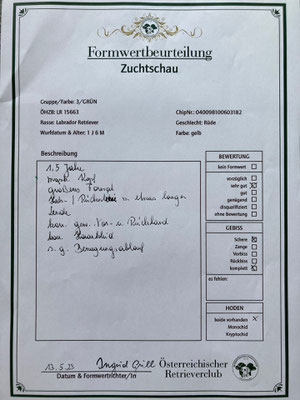 Formwertbeurteilung
Zuchtschau
Gruppe/Farbe: 3/GRÜN
ÖHZB: LR 15663
ChipNr.: 040098100603182
Rasse: Labrador Retriever
Geschlecht: Rüde
Wurfdatum & Alter: 1 J 6 M
Farbe: gelb
Beschreibung
1,5 Jahre
mask. Kopf
großes Format
Hals- / Rücken in etwas langer
Lende
kor. gew. Vor- u. Rückhand
kor. Haarkleid
s. g. Bewegungsablauf
BEWERTUNG
kein Formwert
vorzüglich
sehr gut X
gut
genügend
disqualifiziert
ohne Bewertung
GEBISS
Schere X
Zange
Vorbiss
Rückbiss
komplett X
es fehlen:
HODEN
beide vorhanden X
Monochid
Kryptochid
13.5.23
Ingrid
Datum & Formwertrichter/in
Österreichischer
Retrieverclub